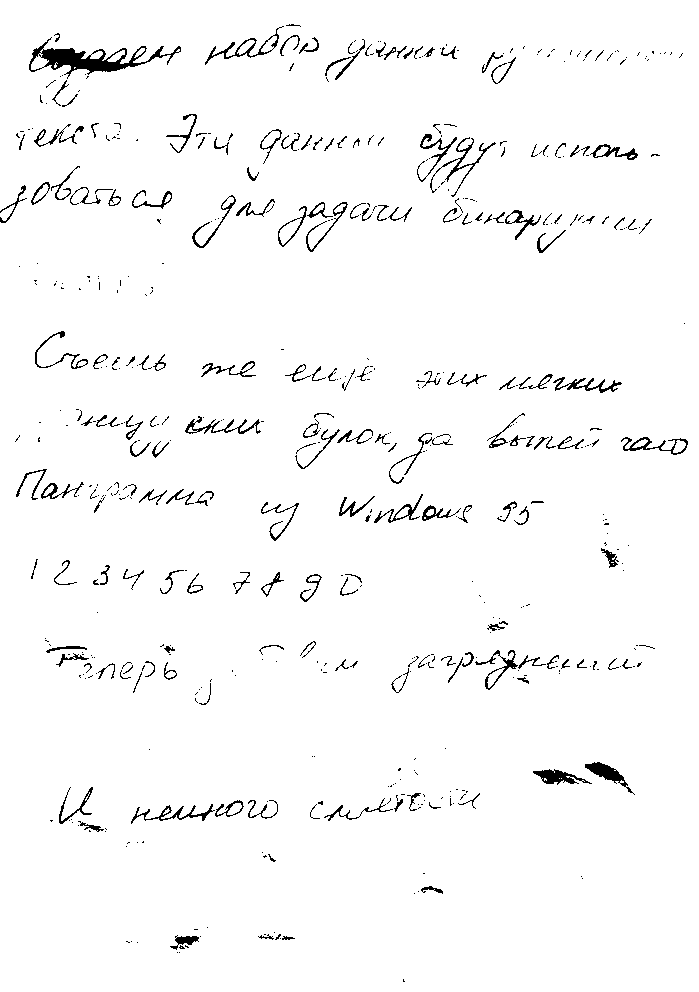 Создаем набор данных
текста. Эти данные будут исполь-
зоваться для задачи бинаризации
Съешь же ещё этих мягких
французских булок, да выпей чаю
Панграмма из Windows 95
1 2 3 4 5 6 7 8 9 0
Теперь добавим загрязнений
И немного сметаны